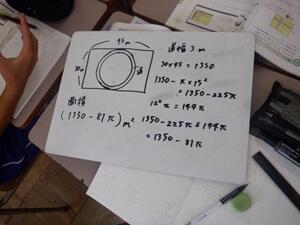 45m
30m
道
道幅 3m
30×45=1350
1350-π×15²
=1350-225π
12²π=144π
1350-225π+144π
=1350-81π
面積
(1350-81π)m²